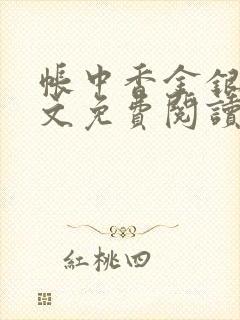 帳中香金銀
文免費閱讀
紅桃四